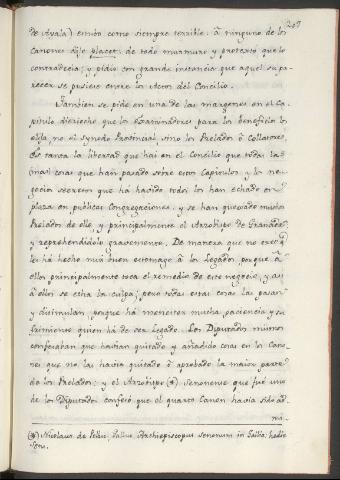 de Ayala) emitò como siempre terrible: à ninguno de los
Canones dijo placet; de todo murmuro y protextò que lo
contradecia; y pidio con grande instancia que aquel su pa-
recer se pusiese entre los Actos del Concilio.
Tambien se pide en una de las margenes en el Ca-
pitulo diezioche que los Examinadores para los beneficios los
elija, no el Synodo Provincial, sino los Prelados ò Collatores.
Es tanta la libertad que hai en el Concilio que todas las
mas cosas que han pasado sobre estos Capitulos y los ne-
gocios secretos que hà habido todos los han echado en
plaza en publicas Congregaciones, y se han quexado muchos
Prelados de ello, y principalmente el Arzobispo de Granada,
y reprehendidolo gravemente. De manera que no creo q.
les hà hecho mui buen estomago à los Legados porque à
ellos principalmente toca el remedio de este negocio, y asi
à ellos se echa la culpa; pero todas estas cosas las pasan
y disimulan, porque hà menester mucha paciencia y su-
frimiento quien hà de ser Legado. Los Diputados mismos
confesaban que havian quitado y añadido cosas en los Cano-
nes que no las havia quitado ò aprobado la maior parte
de los Prelados; y el Arzobispo (*) Senonense que fuè uno
de los Diputados confesò que el quarto Canon havia sido ad-
ma-
(*) Nicolaus de Pelleve, Gallus, Archiepiscopus Senonum in Gallia; hodie
Sens.